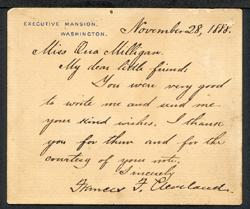 EXECUTIVE MANSION,
WASHINGTON.
November 28, 1888.
Miss Ora Milligan.
My dear little friend;
You were very good
to write me and send me
your kind wishes. I thank
you for them and for the
courtesy of your note.
Sincerely
Frances F. Cleveland.